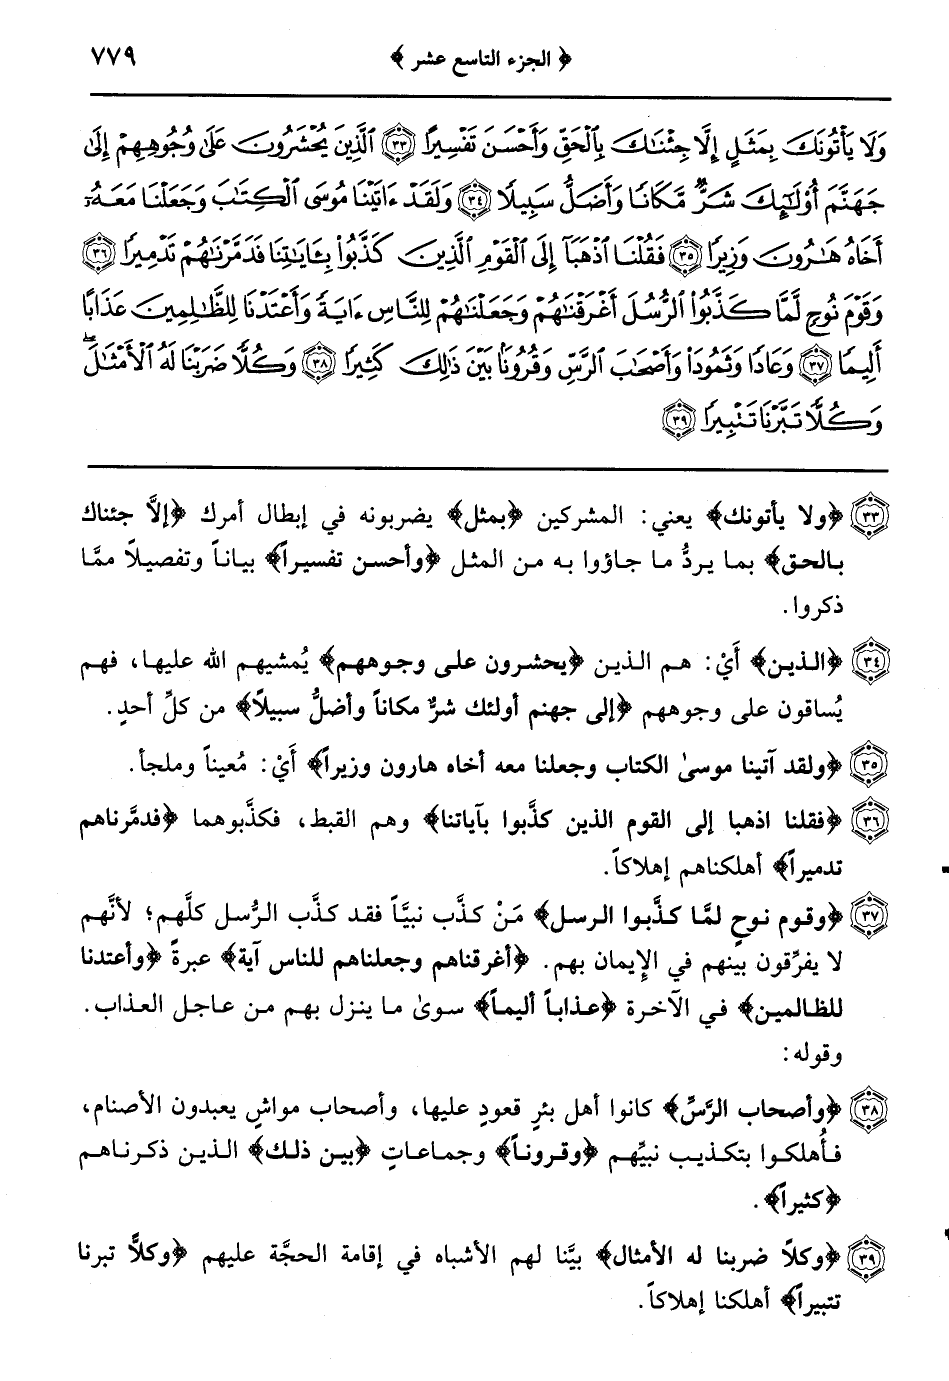 ﴿ الجزء التاسع عشر ﴾ ٧٧٩
وَلَا يَأْتُونَكَ بِمَثَلٍ إِلَّا جِئْنَٰكَ بِٱلْحَقِّ وَأَحْسَنَ تَفْسِيرًا ٣٣ ٱلَّذِينَ يُحْشَرُونَ عَلَىٰ وُجُوهِهِمْ إِلَىٰ
جَهَنَّمَ أُو۟لَٰٓئِكَ شَرٌّ مَّكَانًا وَأَضَلُّ سَبِيلًا ٣٤ وَلَقَدْ ءَاتَيْنَا مُوسَى ٱلْكِتَٰبَ وَجَعَلْنَا مَعَهُۥٓ
أَخَاهُ هَٰرُونَ وَزِيرًا ٣٥ فَقُلْنَا ٱذْهَبَآ إِلَى ٱلْقَوْمِ ٱلَّذِينَ كَذَّبُوا۟ بِـَٔايَٰتِنَا فَدَمَّرْنَٰهُمْ تَدْمِيرًا ٣٦
وَقَوْمَ نُوحٍ لَّمَّا كَذَّبُوا۟ ٱلرُّسُلَ أَغْرَقْنَٰهُمْ وَجَعَلْنَٰهُمْ لِلنَّاسِ ءَايَةً وَأَعْتَدْنَا لِلظَّٰلِمِينَ عَذَابًا
أَلِيمًا ٣٧ وَعَادًا وَثَمُودَا۟ وَأَصْحَٰبَ ٱلرَّسِّ وَقُرُونًۢا بَيْنَ ذَٰلِكَ كَثِيرًا ٣٨ وَكُلًّا ضَرَبْنَا لَهُ ٱلْأَمْثَٰلَ ۖ
وَكُلًّا تَبَّرْنَا تَتْبِيرًا ٣٩
٣٣ ﴿ولا يأتونك﴾ يعني: المشركين ﴿بمثل﴾ يضربونه في إبطال أمرك ﴿إلَّا جئناك
بالحق﴾ بما يردُّ ما جاؤوا به من المثل ﴿وأحسن تفسيراً﴾ بياناً وتفصيلاً ممَّا
ذكروا.
٣٤ ﴿الذين﴾ أَيْ: هم الذين ﴿يحشرون على وجوههم﴾ يُمشيهم الله عليها، فهم
يُساقون على وجوههم ﴿إلى جهنم أولئك شرٌّ مكاناً وأضلُّ سبيلاً﴾ من كلِّ أحدٍ.
٣٥ ﴿ولقد آتينا موسىٰ الكتاب وجعلنا معه أخاه هارون وزيراً﴾ أَيْ: مُعيناً وملجأ.
٣٦ ﴿فقلنا اذهبا إلى القوم الذين كذَّبوا بآياتنا﴾ وهم القبط، فكذَّبوهما ﴿فدمَّرناهم
تدميراً﴾ أهلكناهم إهلاكاً.
٣٧ ﴿وقوم نوحٍ لمَّا كذَّبوا الرسل﴾ مَنْ كذَّب نبيَّاً فقد كذَّب الرُّسل كلَّهم؛ لأنَّهم
لا يفرِّقون بينهم في الإيمان بهم. ﴿أغرقناهم وجعلناهم للناس آية﴾ عبرةً ﴿وأعتدنا
للظالمين﴾ في الآخرة ﴿عذاباً أليماً﴾ سوىٰ ما ينزل بهم من عاجل العذاب.
وقوله:
٣٨ ﴿وأصحاب الرَّسِّ﴾ كانوا أهل بئرٍ قعودٍ عليها، وأصحاب مواشٍ يعبدون الأصنام،
فأُهلكوا بتكذيب نبيِّهم ﴿وقروناً﴾ وجماعاتٍ ﴿بين ذلك﴾ الذين ذكرناهم
﴿كثيراً﴾.
٣٩ ﴿وكلاً ضربنا له الأمثال﴾ بيَّنا لهم الأشباه في إقامة الحجَّة عليهم ﴿وكلاًّ تبرنا
تتبيراً﴾ أهلكنا إهلاكاً.